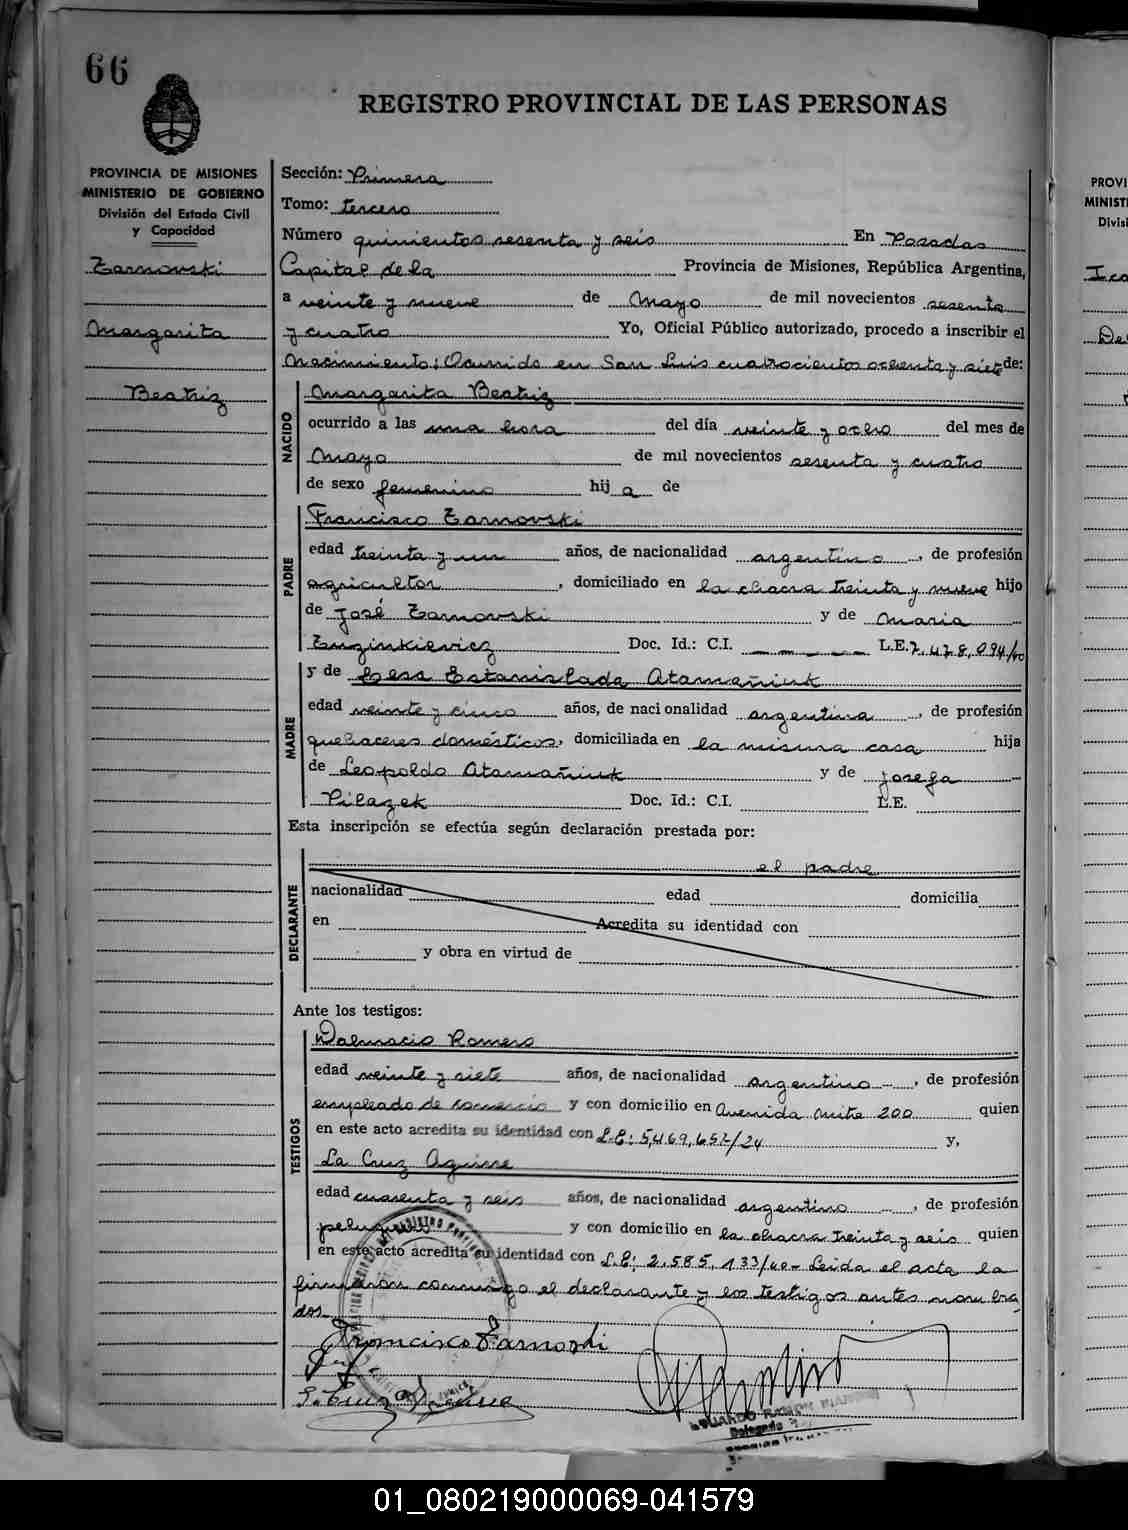 66
REGISTRO PROVINCIAL DE LAS PERSONAS
PROVINCIA DE MISIONES
MINISTERIO DE GOBIERNO
División del Estado Civil
y Capacidad
Zarnovski
Margarita
Beatriz
Sección: Primera
Tomo: tercero
Número quinientos sesenta y seis En Posadas
Capital de la Provincia de Misiones, República Argentina,
a veinte y nueve de Mayo de mil novecientos sesenta
y cuatro Yo, Oficial Público autorizado, procedo a inscribir el
Nacimiento: Ocurrido en San Luis cuatrocientos ochenta y siete de:
NACIDO
Margarita Beatriz
ocurrido a las una hora del día veinte y ocho del mes de
Mayo de mil novecientos sesenta y cuatro
de sexo femenino hij a de
PADRE
Francisco Zarnovski
edad treinta y un años, de nacionalidad argentino, de profesión
agricultor, domiciliado en la chacra treinta y nueve hijo
de José Zarnovski y de Maria
Zuzinkievicz Doc. Id.: C.I. L.E. 7.478.094/50
MADRE
y de Estanislada Atamañiuk
edad veinte y cinco años, de nacionalidad argentina, de profesión
quehaceres domésticos, domiciliada en la misma casa hija
de Leopoldo Atamañiuk y de Josefa
Pilazek Doc. Id.: C.I. L.E.
Esta inscripción se efectúa según declaración prestada por:
DECLARANTE
el padre
nacionalidad edad domicilia
en Acredita su identidad con
y obra en virtud de
Ante los testigos:
TESTIGOS
Dalmacio Romero
edad veinte y siete años, de nacionalidad argentino, de profesión
empleado de comercio y con domicilio en Avenida Mitre 200 quien
en este acto acredita su identidad con L.E: 5,469,657/24 y,
La Cruz Aguirre
edad cuarenta y seis años, de nacionalidad argentino, de profesión
peluquero y con domicilio en la chacra treinta y seis quien
en este acto acredita su identidad con L.E: 2.585,133/40- Leida el acta la
firmaron conmigo el declarante y los testigos antes nombra
dos
Francisco Zarnoski
EDUARDO RAMON
Delegado
PROVI
MINIST
Divis
01_080219000069-041579